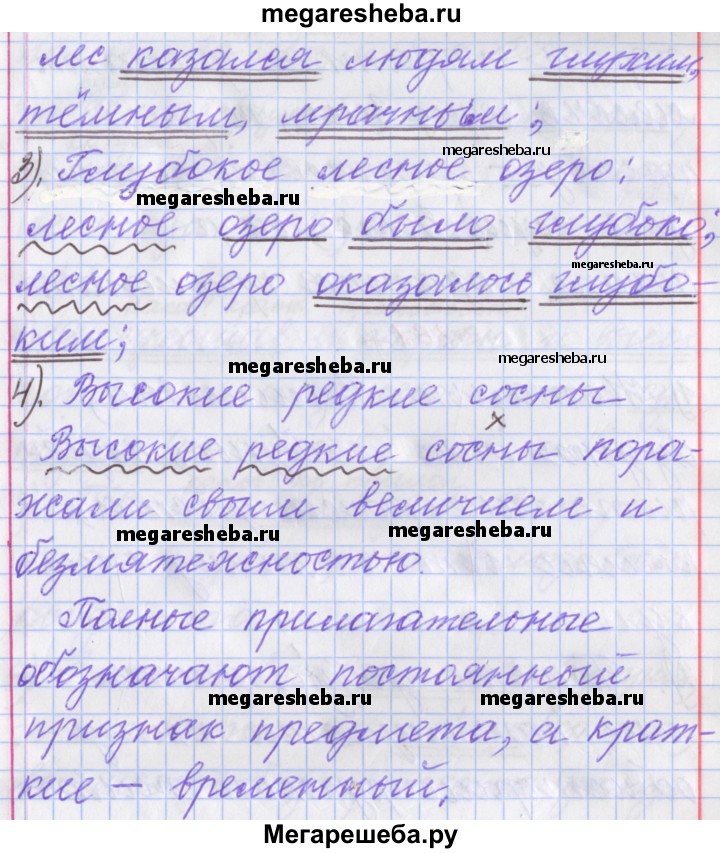 megaresheba.ru
лес казался людям глухим,
тёмным, мрачным;
megaresheba.ru
3). Глубокое лесное озеро:
megaresheba.ru
лесное озеро было глубоко;
megaresheba.ru
лесное озеро оказалось глубо-
ким;
megaresheba.ru
4). Высокие редкие сосны
megaresheba.ru
х
Высокие редкие сосны пора-
жали своим величием и
megaresheba.ru
megaresheba.ru
безмятежностью.
Полные прилагательные
обозначают постоянный
megaresheba.ru
megaresheba.ru
признак предмета, а крат-
кие – временный.
Мегарешеба.ру